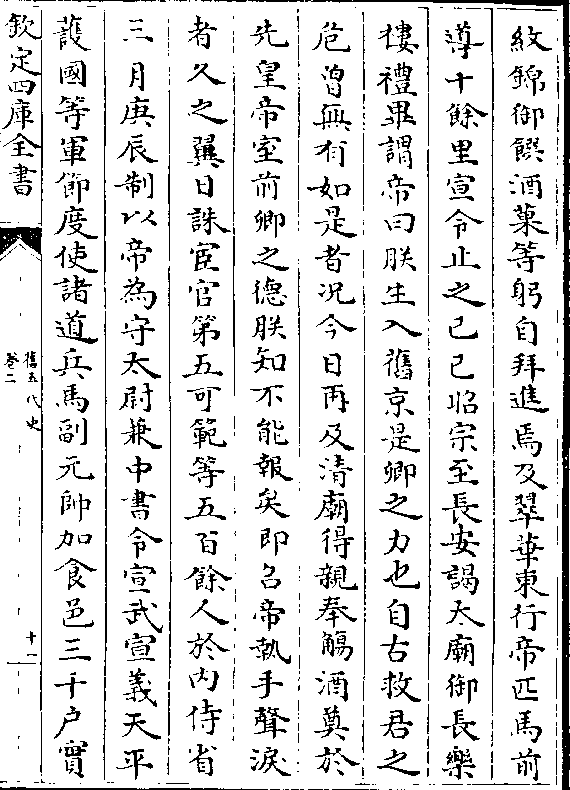 紋錦御饌酒菓等躬自拜進焉及翠華東行帝匹馬前
導十餘里宣令止之己巳昭宗至長安謁太廟御長樂
樓禮畢謂帝曰朕生入舊京是卿之力也自古救君之
危曾無有如是者况今日再及清廟得親奉觴酒奠於
先皇帝室前卿之德朕知不能報矣即召帝執手聲淚
者久之翼日誅宦官第五可範等五百餘人於内侍省
三月庚辰制以帝為守太尉兼中書令宣武宣義天平
護國等軍節度使諸道兵馬副元帥加食邑三千户實
欽定四庫全書
舊五代史
卷二
十一